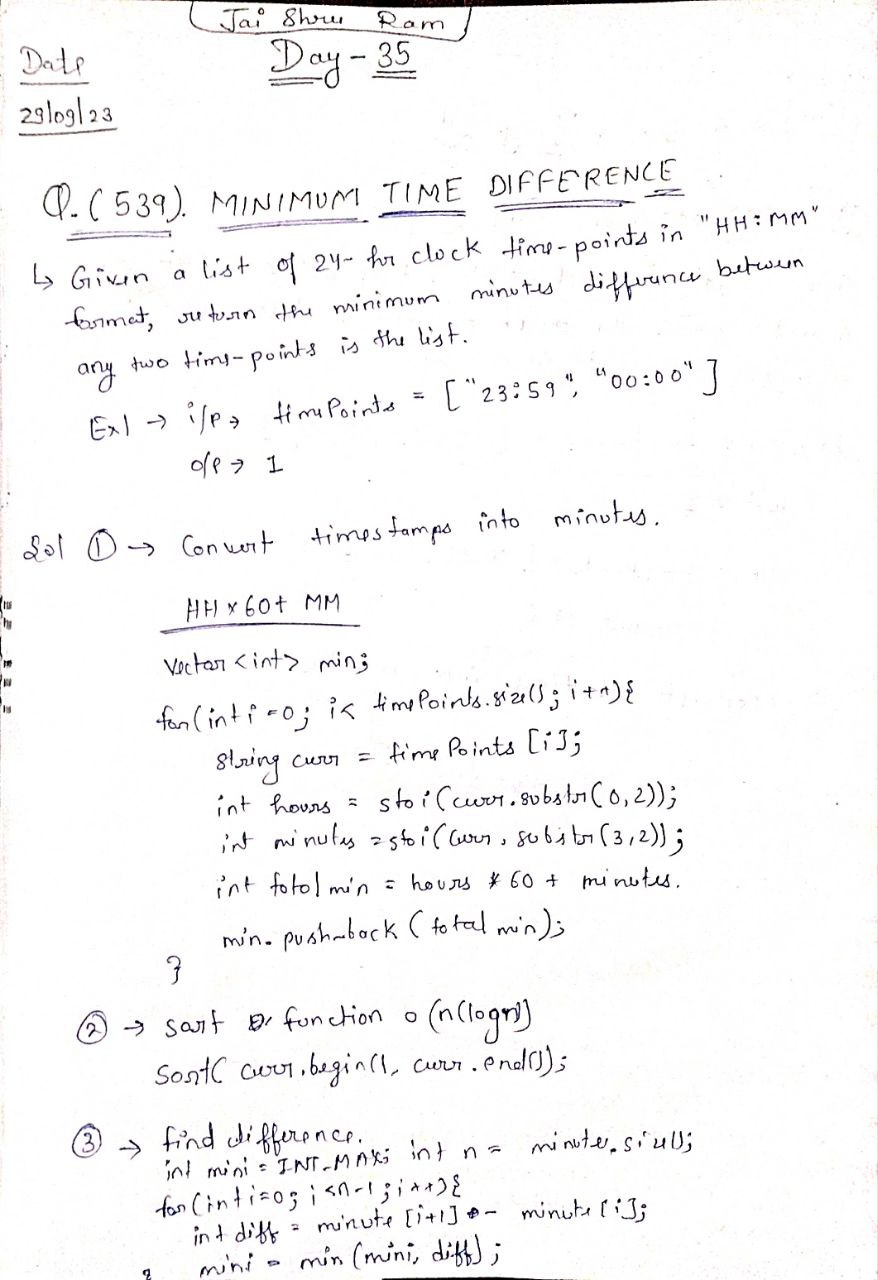 Jai Shree Ram
Day - 35
Date
29/09/23
Q. (539). MINIMUM TIME DIFFERENCE
↳ Given a list of 24-hr clock time-points in "HH:MM"
format, return the minimum minutes difference between
any two time-points is the list.
Ex1 → i/p → timePoints = ["23:59", "00:00"]
o/p → 1
Sol ① → Convert timestamps into minutes.
HH x 60 + MM
Vector <int> min;
for(int i=0; i< timePoints.size(); i++){
string curr = timePoints [i];
int hours = stoi(curr.substr(0,2));
int minutes = stoi(curr.substr(3,2));
int total min = hours * 60 + minutes.
min.push_back (total min);
}
② → sort function o (n(logn))
Sort( curr.begin(), curr.end());
③ → find difference.
int mini = INT_MAX; int n = minute.size();
for (int i=0; i<n-1; i++){
int diff = minute [i+1] - minute [i];
mini = min (mini, diff);
}